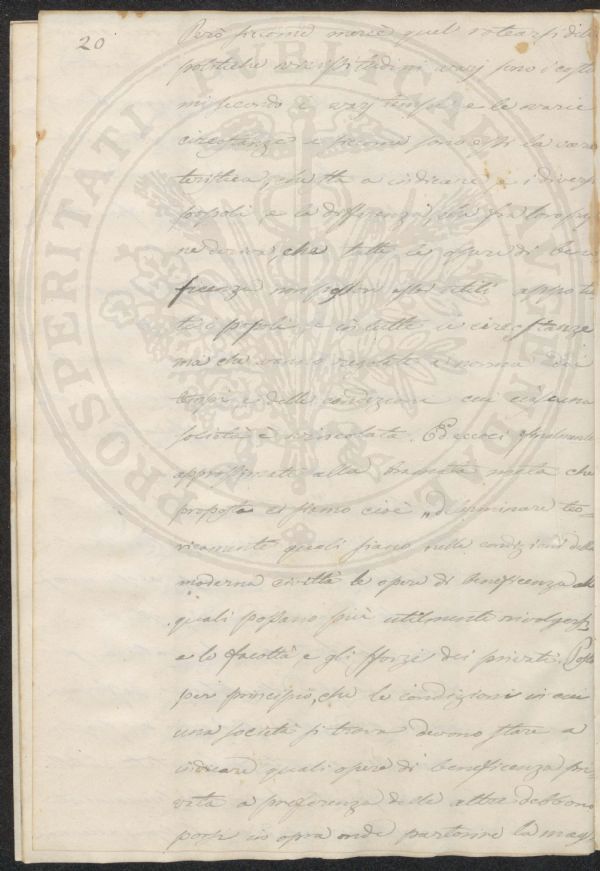 20
Però siccome mercè quel rotearsi delle
politiche vicissitudini varj sono i costu
mi secondo i varj tempi e le varie
circostanze e siccome sono essi la carat
teristica, che sta a indicare i diversi
popoli e la differenza, che fra loro
ne deriva, che tutte le opere di bene
ficenza non possono esser utili appo tut
ti i popoli, e in tutte le circostanze
ma che vanno regolate a norma dei
tempi e delle condizioni cui ciascuna
società è vincolata. Ed eccoci finalmente
approssimati alla bramata meta che
proposta ci siamo cioè „determinare teo-
ricamente quali siano nelle condizioni della
moderna civiltà le opere di beneficenza alle
quali possano più utilmente rivolgersi
e le facoltà e gli sforzi dei privati. Posto
per principio, che le condizioni in cui
una società si trova devono stare a
indicare quali opere di beneficenza pri-
vata a preferenza delle altre debbono
porsi in opra onde partorire la mag
PROSPERITATI PUBLICAE AUGENDAE